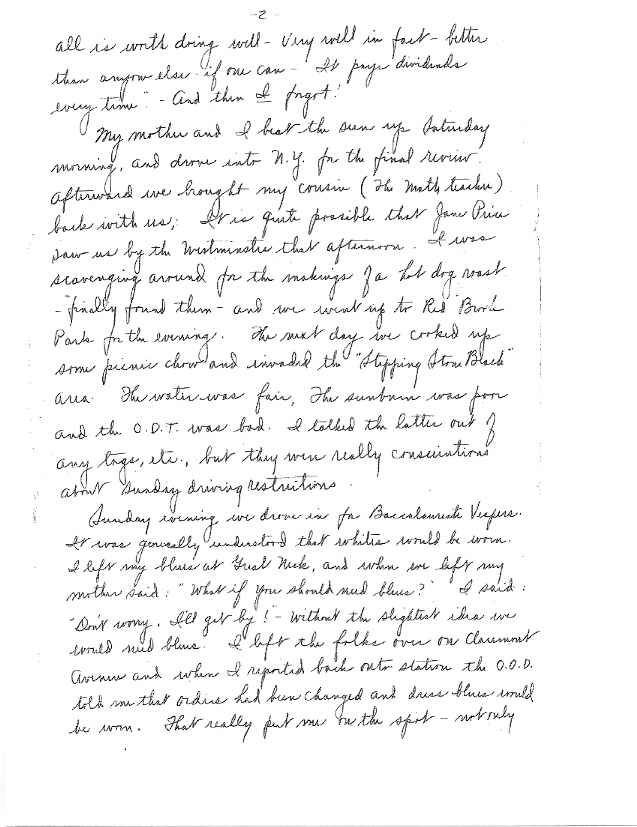 -2-
all is worth doing well - Very well in fact - better
than anyone else if one can - "It pays dividends
every time" - And then I forgot!
My mother and I beat the sun up Saturday
morning, and drove into N.Y. for the final review.
Afterward we brought my cousin (The Math teacher)
back with us; It is quite possible that Jane Price
saw us by the Westminster that afternoon. I was
scavenging around for the makings of a hot dog roast
- finally found them - and we went up to Red Brook
Park for the evening. The next day we cooked up
some picnic chow and invaded the "Stepping Stone Beach"
area. The water was fair, The sunburn was poor
and the O.D.T. was bad. I talked the latter out of
any tags, etc., but they were really conscientious
about Sunday driving restrictions.
Sunday evening we drove in for Baccalaureate Vespers.
It was generally understood that whites would be worn.
I left my blues at Great Neck, and when we left my
mother said: "What if you should need blues?" I said:
"Don't worry. I'll get by! - Without the slightest idea we
would need blues. I left the folks over on Claremont
Avenue and when I reported back onto station the O.O.D.
told me that orders had been changed and dress blues would
be worn. That really put me on the spot - not only